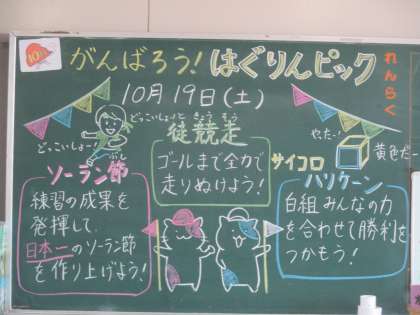 がんばろう！はぐりんピック
れんらく
10月19日(土)
どっこいしょーっと
どっこいしょー！
きょうそう
徒競走
ゴールまで全力で
走りぬけよう！
やったー！
黄色だー
ぶし
ソーラン節
練習の成果を
発揮して、
日本一のソーラン節
を作り上げよう！
サイコロ
ハリケーン
白組みんなの力
を合わせて勝利を
つかもう！